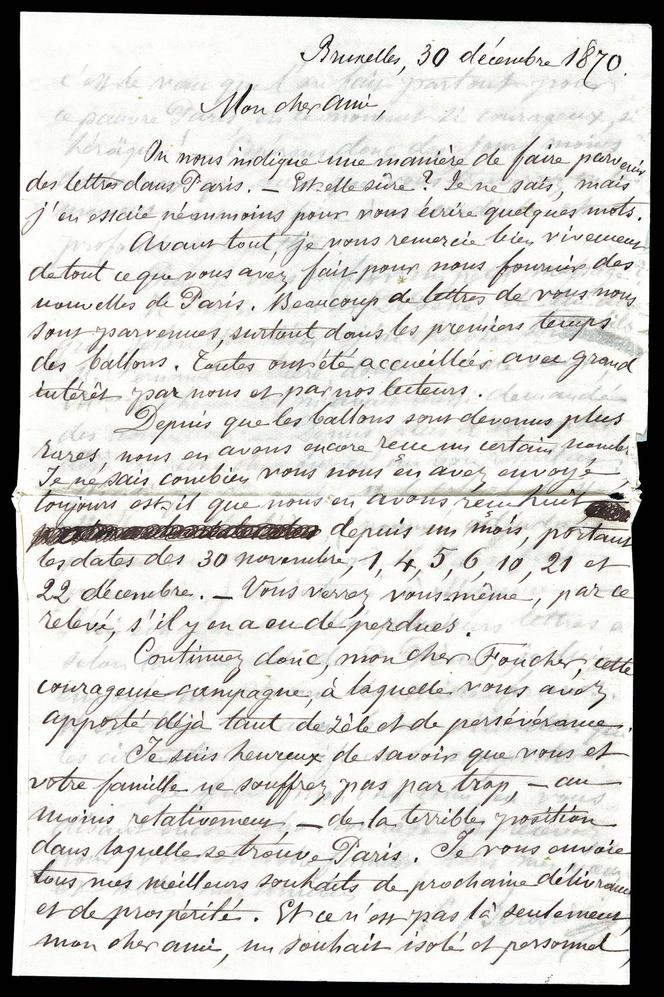 Bruxelles, 30 décembre 1870.
Mon cher Ami,
On nous indique une manière de faire parvenir
des lettres dans Paris. — Est-elle sûre? Je ne sais, mais
j'en essaie néanmoins pour vous écrire quelques mots.
Avant tout, je vous remercie bien vivement
de tout ce que vous avez fait pour nous fournir des
nouvelles de Paris. Beaucoup de lettres de vous nous
sont parvenues, surtout dans les premiers temps
des ballons. Toutes ont été accueillies avec grand
intérêt par nous et par nos lecteurs.
Depuis que les ballons sont devenus plus
rares, nous en avons encore reçu un certain nombre.
Je ne sais combien vous nous en avez envoyé,
toujours est-il que nous en avons reçu huit
depuis un mois, portant
les dates des 30 novembre, 1, 4, 5, 6, 10, 21 et
22 décembre. — Vous verrez vous-même, par ce
relevé, s'il y en a eu de perdues.
Continuez donc, mon cher Foucher, cette
courageuse campagne, à laquelle vous avez
apporté déjà tant de zèle et de persévérance.
Je suis heureux de savoir que vous et
votre famille ne souffrez pas par trop, — au
moins relativement — de la terrible position
dans laquelle se trouve Paris. Je vous envoie
tous mes meilleurs souhaits de prochaine délivrance
et de prospérité. Et ce n'est pas là seulement,
mon cher ami, un souhait isolé et personnel,